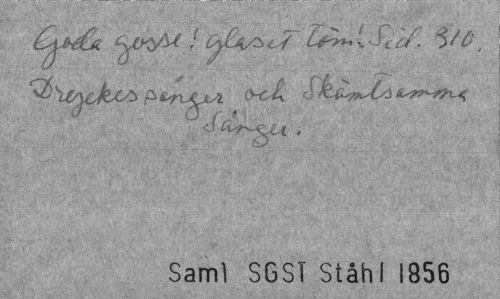 Goda gosse! glaset töm! Sid. 310.
Dryckessånger och Skämtsamma
Sånger.
Saml SGST Ståhl 1856